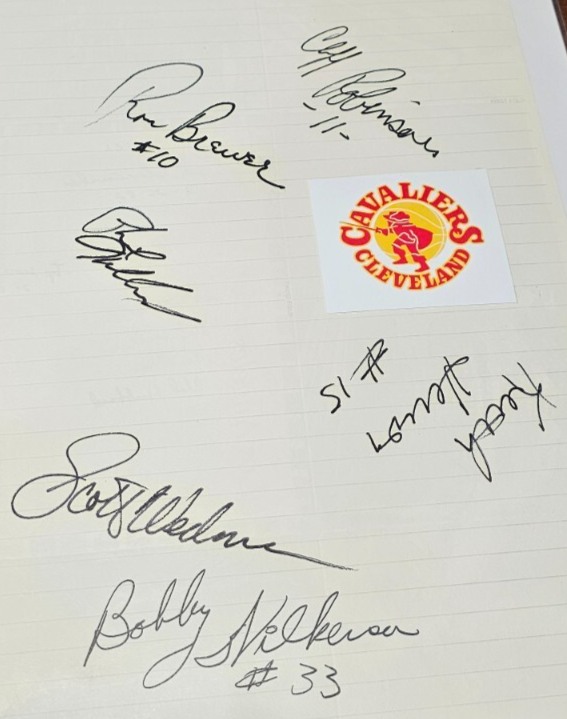 Cliff Robinson
-11-
Ron Brewer
#10
CAVALIERS
CLEVELAND
Keith
Herron
#15
Scott Wedman
Bobby Wilkerson
#33